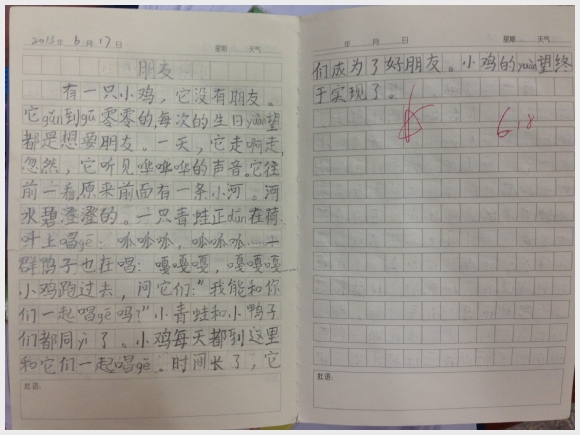 2013年6月17日 星期 天气
朋友
有一只小鸡，它没有朋友。
它gǎn到gū零零的每次的生日yuàn望
都是想要朋友。一天，它走啊走，
忽然，它听见哗哗哗的声音。它往
前一看原来前面有一条小河。河
水碧澄澄的。一只青蛙正dūn在荷
叶上唱gē：呱呱呱，呱呱呱……一
群鸭子也在唱：嘎嘎嘎，嘎嘎嘎……
小鸡跑过去，问它们：“我能和你
们一起唱gē吗？”小青蛙和小鸭子
们都同yì了。小鸡每天都到这里
和它们一起唱gē。时间长了，它
批语：
年 月 日 星期 天气
们成为了好朋友。小鸡的yuàn望终
于实现了。
6.18
批语：